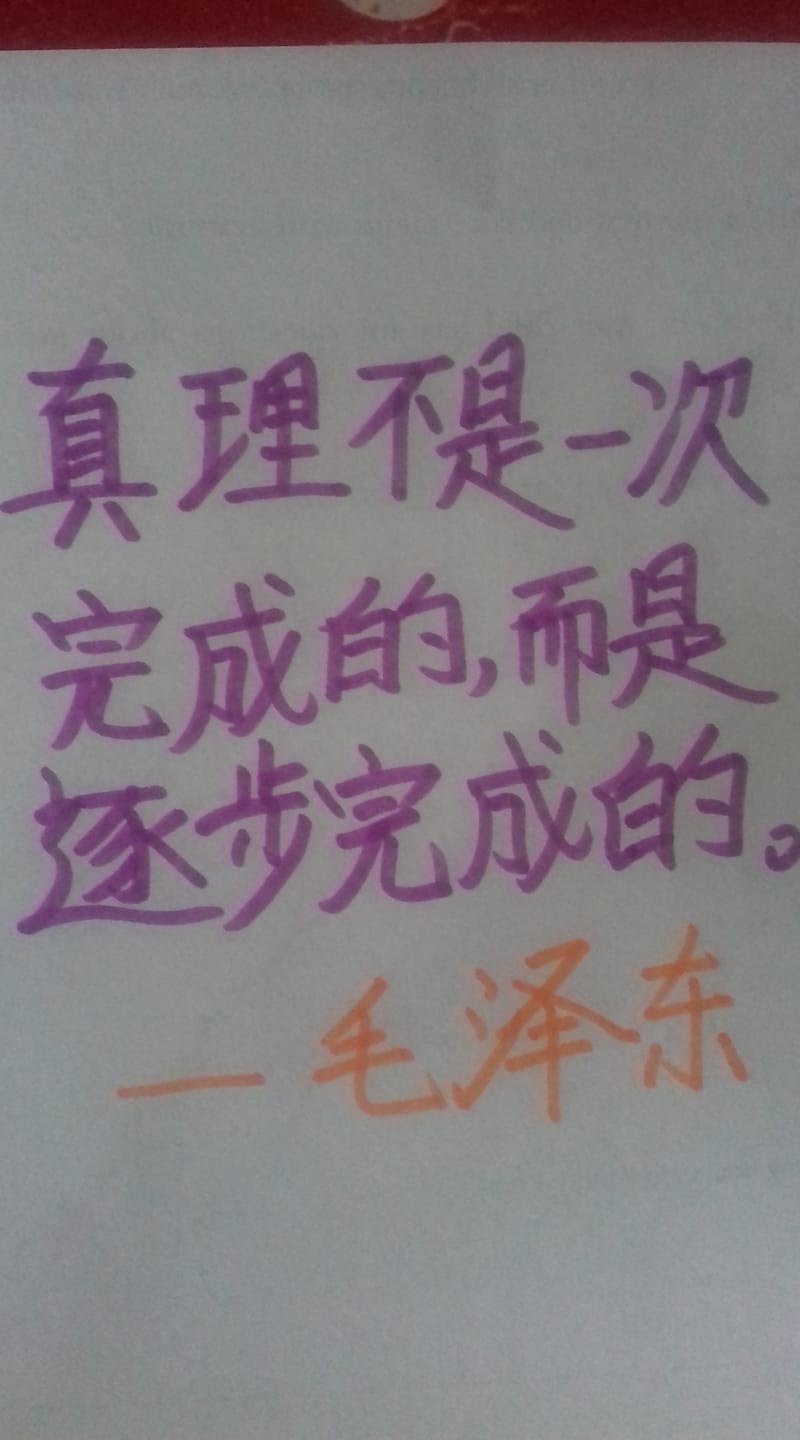 真理不是一次
完成的,而是
逐步完成的。
—毛泽东